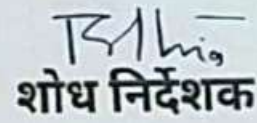 शोध निर्देशक